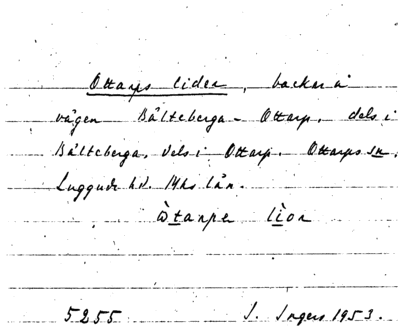 Ottarps lider, backar å
vägen Bälteberga - Ottarp, dels i
Bälteberga, dels i Ottarp. Ottarps sn,
Luggude hd. Mhs län.
òtarpe lìor
5255 I. Ingers 1953.